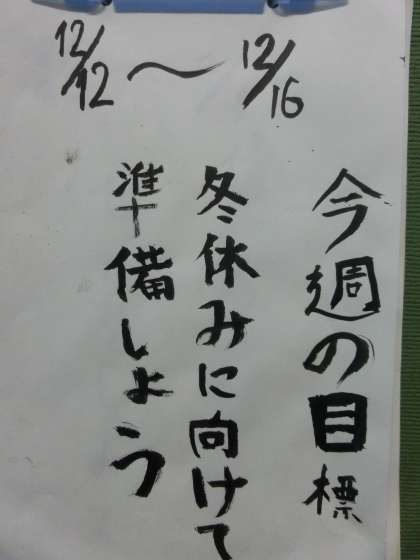 12/12～12/16
今週の目標
冬休みに向けて
準備しよう